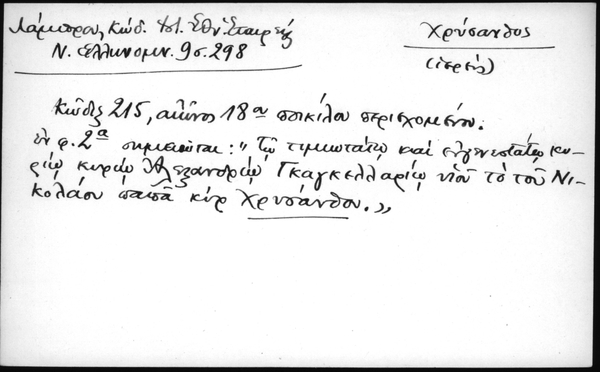 Λάμπρος, Κώδ. Ἱστ. Ἐθν. Ἑταιρείας
Ν. Ἑλληνομν. 9 σ. 298
Χρύσανθος
(ἱερεύς)
Κῶδιξ 215, αἰῶνος 18ου ποικίλου περιεχομένου.
ἐν φ. 2α σημειοῦται: "Τῷ τιμιωτάτῳ καὶ εὐγενεστάτῳ κυ-
ρίῳ κυρίῳ Ἀλεξάνδρῳ Γκαγκελλαρίῳ υἱοῦ τὸ τοῦ Νι-
κολάου παπᾶ κὺρ Χρυσάνθου."